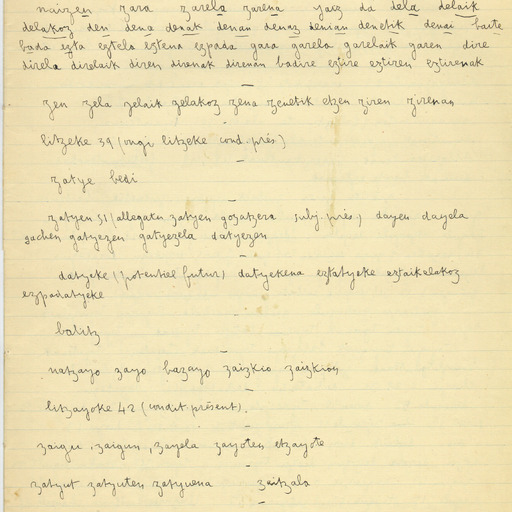 naizen zara zarela zarena yaiz da dela delaik
delakoz den dena denak denan denaz denian denetik denai baite
bada ezta eztela eztena ezpada gara garela garelaik garen dire
direla direlaik diren direnak direnan badire eztire eztiren eztirenak
zen zela zelaik zelakoz zena zenetik etzen ziren zirenan
litzeke 39 (ongi litzeke cond. prés.)
zatye bedi
zatyen 51 (allegatu zatyen gozatzera subj. prés.) dayen dayela
gachen gatyezen gatyezela datyezen
datyeke (potentiel futur) datyekena eztatyeke eztaikelakoz
ezpadatyeke
balitz
natzayo zayo bazayo zaizkio zaizkion
litzayoke 42 (condit. présent).
zaigu, zaigun, zayela zayoten etzayote
zatyut zatyuten zatyuena zaitzala